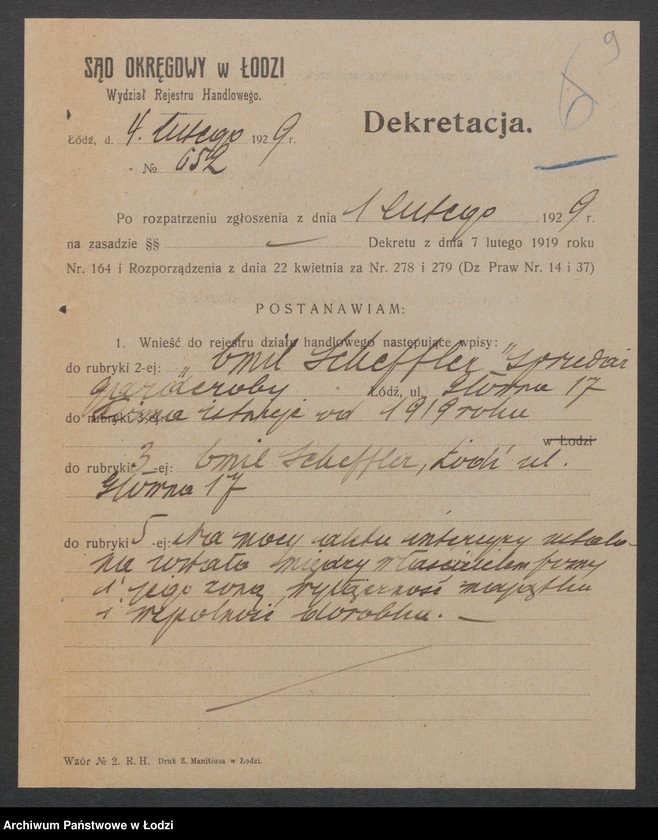 9
SĄD OKRĘGOWY w ŁODZI
Wydział Rejestru Handlowego.
Dekretacja.
Łódź, d. 4. lutego 1929 r.
№ 652
Po rozpatrzeniu zgłoszenia z dnia 1 lutego 1929 r.
na zasadzie §§ — Dekretu z dnia 7 lutego 1919 roku
Nr. 164 i Rozporządzenia z dnia 22 kwietnia za Nr. 278 i 279 (Dz Praw Nr. 14 i 37)
POSTANAWIAM:
1. Wnieść do rejestru działu handlowego następujące wpisy:
do rubryki 2-ej: „Emil Scheffler" sprzedaż
garderoby Łódź, ul. Główna 17
do rubryki 3-ej: Firma istnieje od 1919 roku
w Łodzi
do rubryki 3-ej: Emil Scheffler, Łódź ul.
Główna 17
do rubryki 5-ej: Na mocy aktu intercyzy ustalo-
na została między właścicielem firmy
i jego żoną wyłączność majątku
i wspólność dorobku. —
Wzór № 2. R. H. Druk Z. Manitiusa w Łodzi.
Archiwum Państwowe w Łodzi